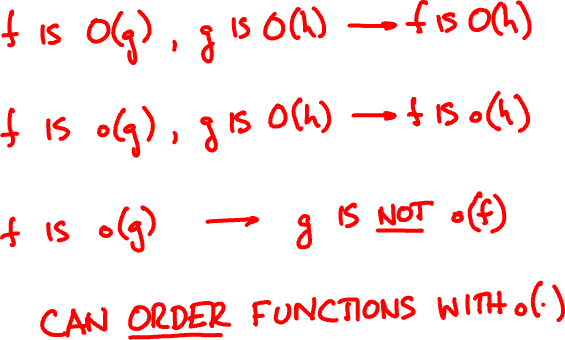 f IS O(g), g IS O(h) → f IS O(h)
f IS o(g), g IS O(h) → f IS o(h)
f IS o(g) → g IS NOT o(f)
CAN ORDER FUNCTIONS WITH o(·)